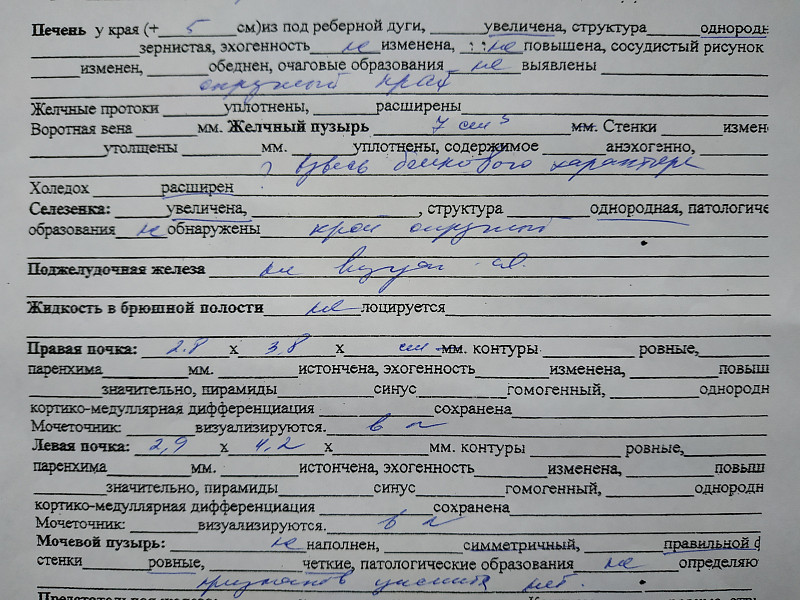 Печень у края (+ 5 см) из под реберной дуги, увеличена, структура однородн
зернистая, эхогенность не изменена, не повышена, сосудистый рисунок
изменен, обеднен, очаговые образования не выявлены
округлый край
Желчные протоки уплотнены, расширены
Воротная вена мм. Желчный пузырь 7 см³ мм. Стенки измен
утолщены мм. уплотнены, содержимое анэхогенно,
взвесь белкового характера
Холедох расширен
Селезенка: увеличена, , структура однородная, патологиче
образования не обнаружены край округлый
Поджелудочная железа не визуал-ся.
Жидкость в брюшной полости не лоцируется
Правая почка: 2.8 х 3,8 х см мм. контуры ровные,
паренхима мм. истончена, эхогенность изменена, повыш
значительно, пирамиды синус гомогенный, однородн
кортико-медуллярная дифференциация сохранена
Мочеточник: визуализируются. в н
Левая почка: 2,9 х 4,2 х мм. контуры ровные,
паренхима мм. истончена, эхогенность изменена, повыш
значительно, пирамиды синус гомогенный, однородн
кортико-медуллярная дифференциация сохранена
Мочеточник: визуализируются. в н
Мочевой пузырь: не наполнен, симметричный, правильной ф
стенки ровные, четкие, патологические образования не определяю
признаков цистита нет.